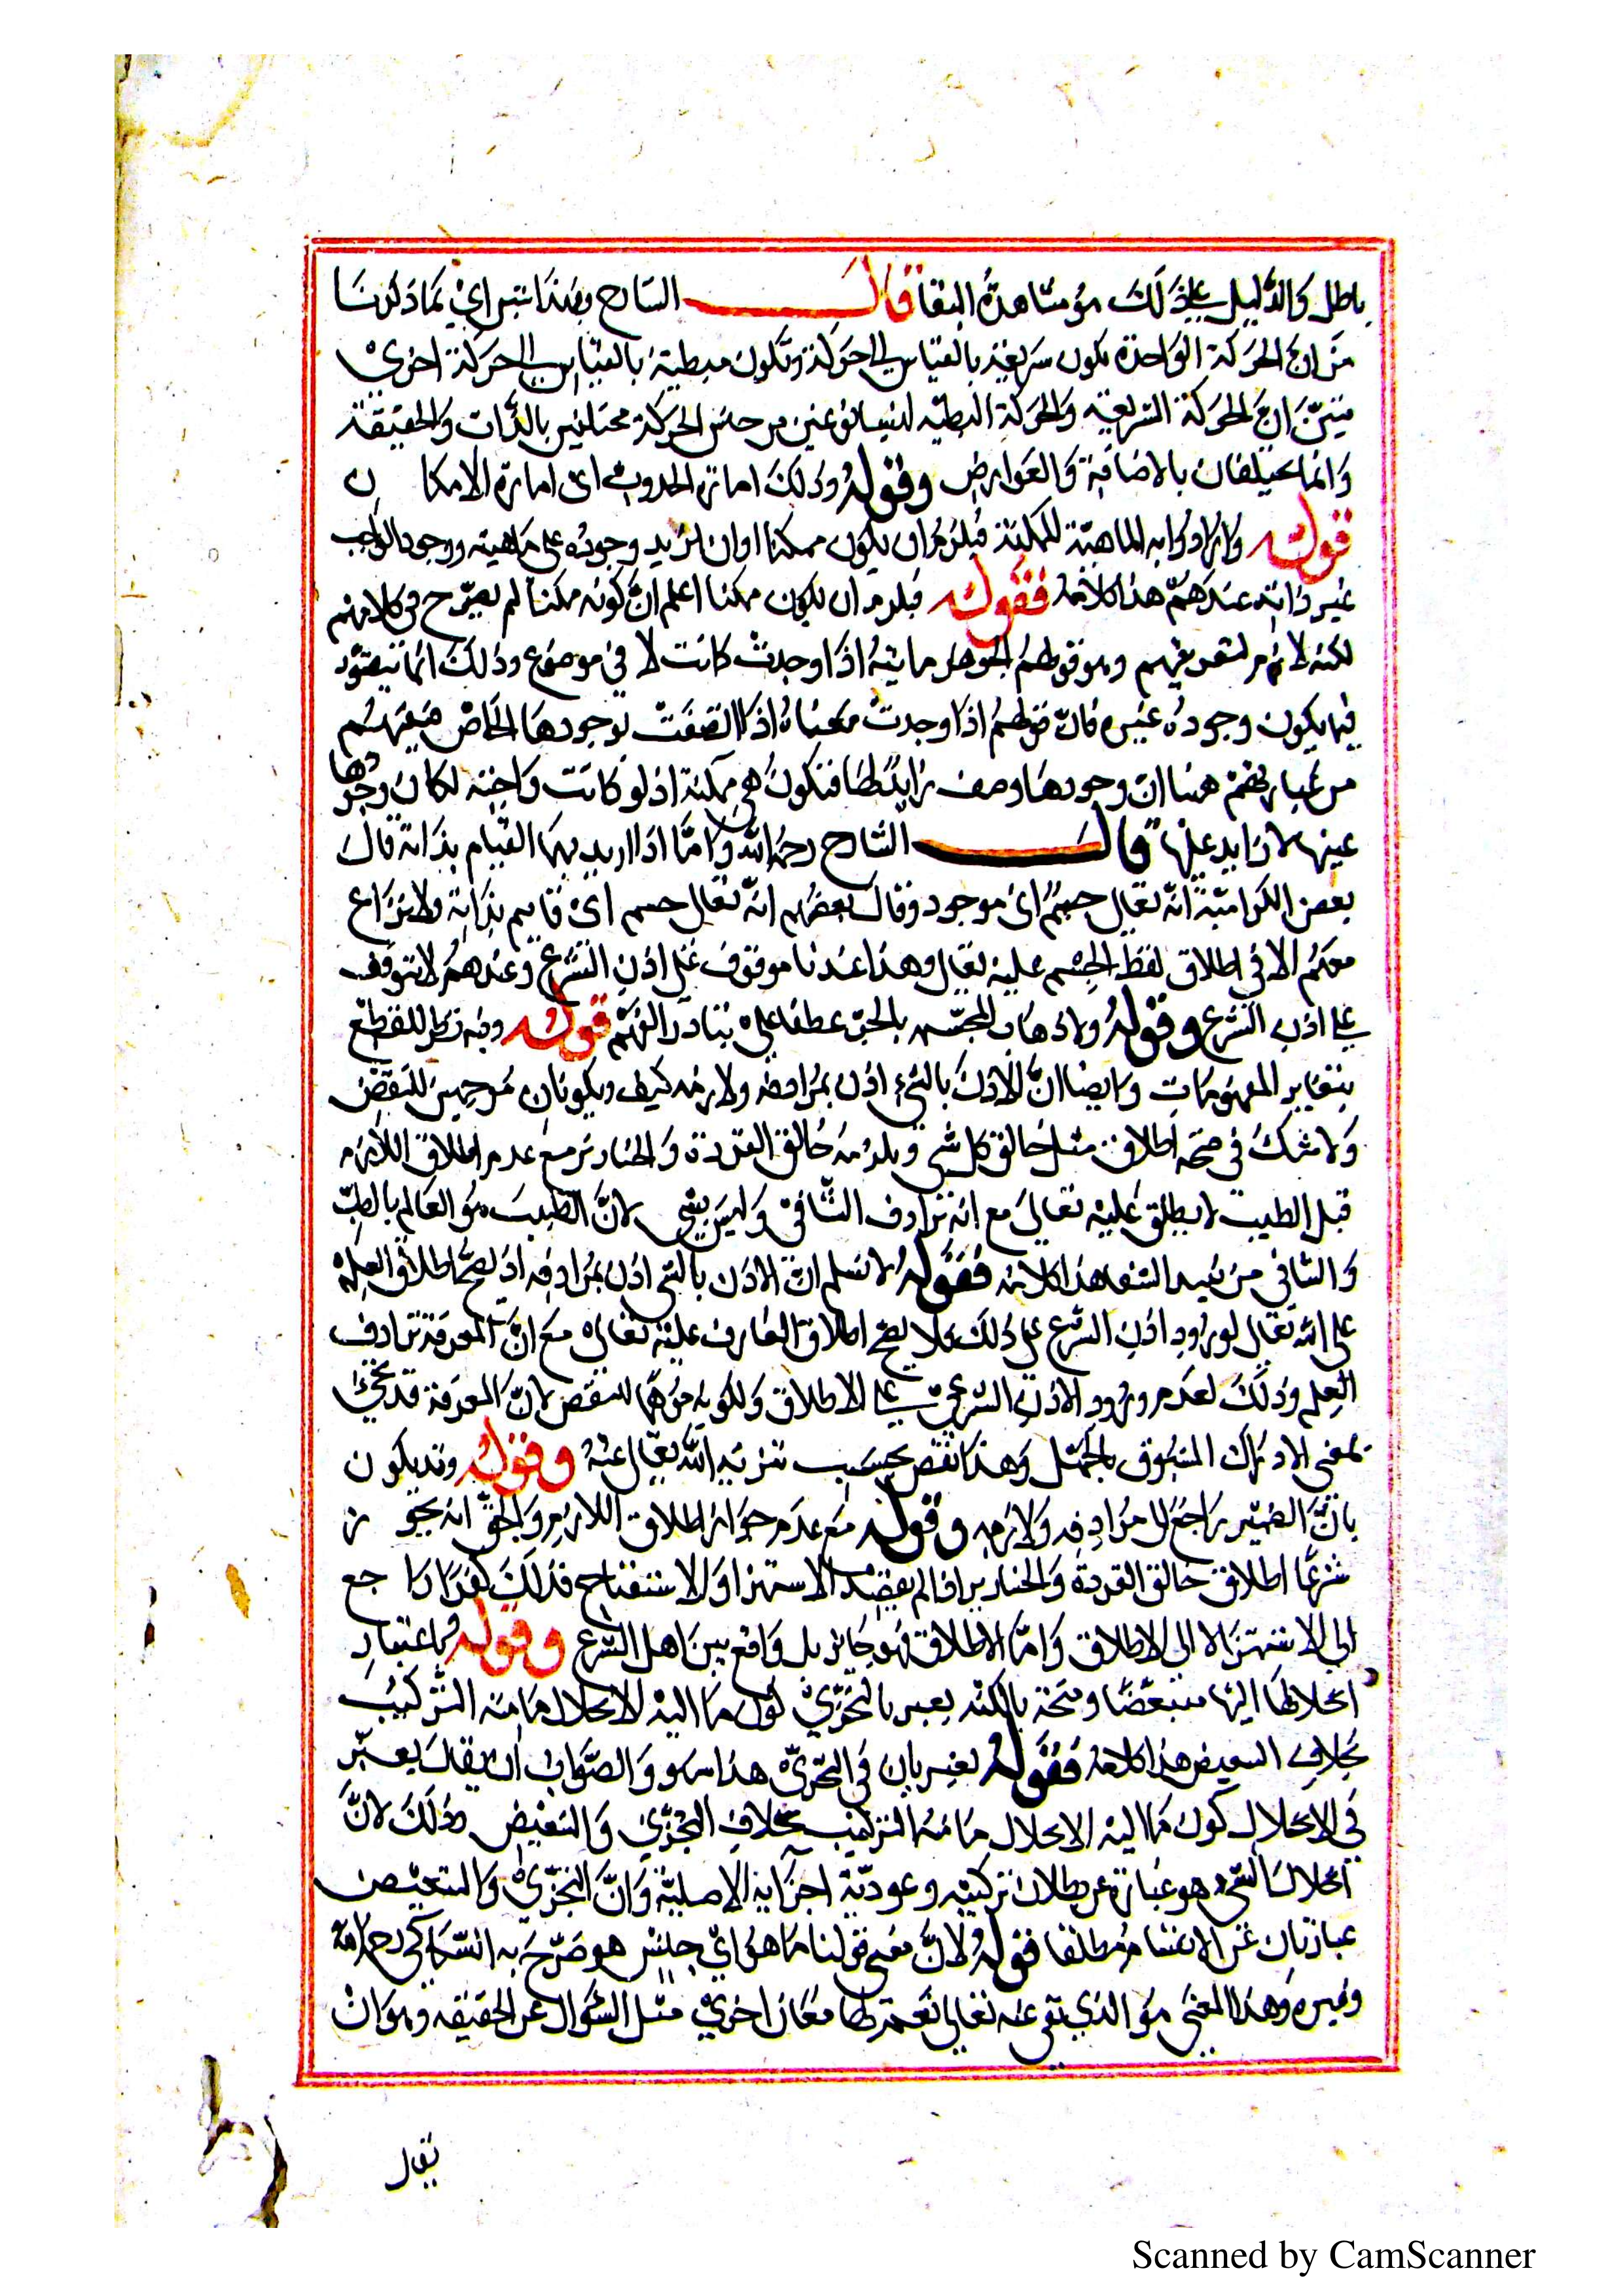 باطل والدليل على ذلك هو مشاهدة البقا قال الشارح وبهذا تبين اي بما ذكرنا
من ان الحركة الواحدة تكون سريعة بالقياس الى حركة وتكون مبطئية بالقياس الى حركة اخرى
تبيّن ان الحركة السريعة والحركة البطيّة ليسا نوعين من جنس الحركة مختلفين بالذات والحقيقة
وانما يختلفان بالاضافة والعوارض وقوله وذلك امارة الحدوث اى امارة الامكان
قوله وارادوا به الماهيّة الممكنة فيلزم ان يكون ممكنا اوان يزيد وجوده على ماهيته ووجود الواجب
غير ذاته عندهم هذا كلامه فقوله فيلزم ان يكون ممكنا اعلم انّ كونه ممكنا لم يصرّح في كلامهم
لكنه لازم لتعريفهم وهو قولهم الجوهر ماهيّة اذا وجدت كانت لا في موضوع وذلك انما يتصوّر
فيما يكون وجوده غيره فانّ قولهم اذا وجدت معناه اذا اتصفت بوجودها الخاص فيفهم
من عبارتهم هنا ان وجودها وصف زايد لها فتكون هي ممكنة اذ لو كانت واجبة لكان وجودها
عينها لا زايد عليها قال الشارح رحمه الله وامّا اذا اريد بهما القيام بذاته قال
بعض الكرامّية انّه تعالى جسم اى موجود وقال بعضهم انّه تعالى جسم اى قايم بذاته ولا نزاع
معهم الا في اطلاق لفظ الجسم عليه تعالى وهذا عندنا موقوف على اذن الشرع وعندهم لا يتوقف
على اذن الشرع وقوله وذهاب المجسّمه بالجرّ عطف على تبادر الفهم قوله وفيه نظر للقطع
بتغاير المفهومات وايضا انّ الاذن بالشيء اذن بمرادفه ولازمه كيف ويكونان موهمين للنقص
ولا شك في صحة اطلاق مثل خالق كل شي ويلزمه خالق القردة والخنازير مع عدم اطلاق اللازم
قيل الطبيب لا يطلق عليه تعالى مع انه ترادف الشافي وليس بشي لانّ الطبيب هو العالم بالطبّ
والشافي من يفيد الشفا هذا كلامه فقوله لا نسلم انّ الاذن بالشي اذن بمرادفه اذ يصحّ اطلاق العلم
على الله تعالى لورود اذن الشرع على ذلك ولا يصحّ اطلاق العارف عليه تعالى مع انّ المعرفة ترادف
العلم وذلك لعدم ورود الاذن الشرعيّ على الاطلاق ولكونه موهما للنقص لانّ المعرفة قد تجئ
بمعنى الادراك المسبوق بالجهل وهذا نقص يجب تنزيه الله تعالى عنه وقوله وقد يكون
بانّ الضمير راجع الى مرادفه ولازمه وقوله مع عدم جواز اطلاق اللازم والحقّ انه يجوز
شرعا اطلاق خالق القردة والخنازير اذا لم يقصد الاستهزا والاستقباح فذلك كفر اراجع
الى الاستهزا لا الى الاطلاق وامّا الاطلاق فهو جايز بل واقع بين اهل الشرع وقوله فباعتبار
انحلالها اليها متبعّضا ومتجزيا لكنّه يعتبر بالتجزّي كون ما اليه الانحلال ما منه التركيب
بخلاف التبعيض هذا كلامه فقوله يعتبر بان في التجزّي هذا سهو والصّواب ان يقال يعتبر
في الانحلال كون ما اليه الانحلال ما منه التركيب بخلاف التجزّي والتبعيض وذلك لانّ
انحلال الشيء هو عبارة عن بطلان تركيبه وعوديّة اجزايه الاصليّة وانّ التجزّي والتبعيض
عبارتان عن الانقسام مطلقا فقوله لانّ معنى قولنا ما هو اي جنس هو صرّح به السّكاكي رحمه الله
وغيره وهذا المعنى هو الذي نفي عنه تعالى نعم لها معان اخرى مثل السّؤال عن الحقيقه وهو ان
يقال
Scanned by CamScanner